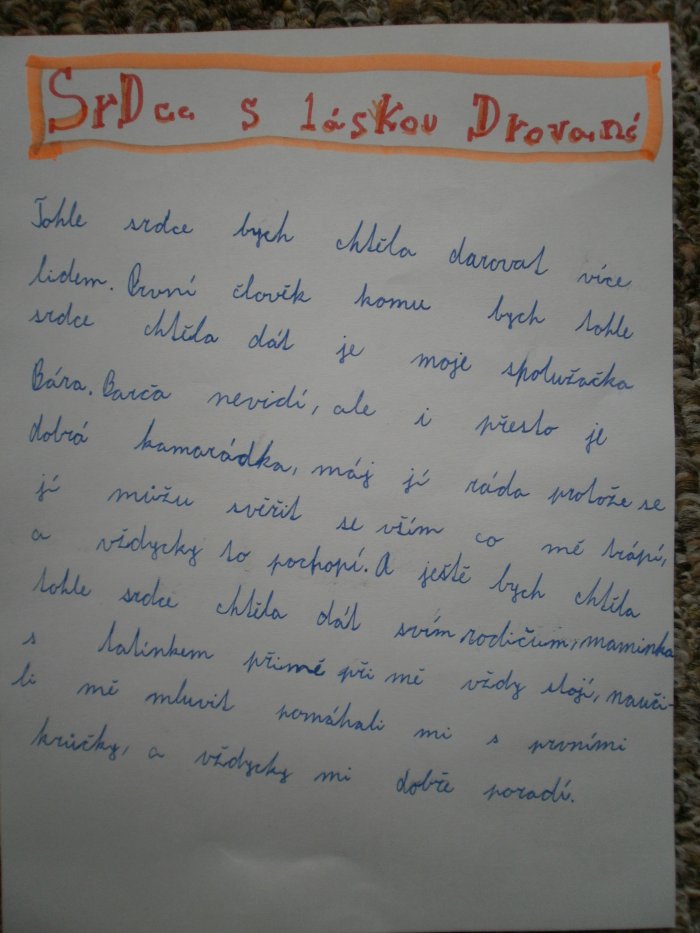 SrDce s láskou Drované
Tohle srdce bych chtěla darovat více
lidem. První člověk komu bych tohle
srdce chtěla dát je moje spolužačka
Bára. Barča nevidí, ale i přesto je
dobrá kamarádka, máj jí ráda protože se
jí můžu svěřit se vším co mě trápí,
a vždycky to pochopí. A ještě bych chtěla
tohle srdce chtěla dát svím rodičum, maminka
s tatínkem přimě při mě vždy stojí, nauči-
li mě mluvit pomáhali mi s prvními
krůčky, a vždycky mi dobře poradí.